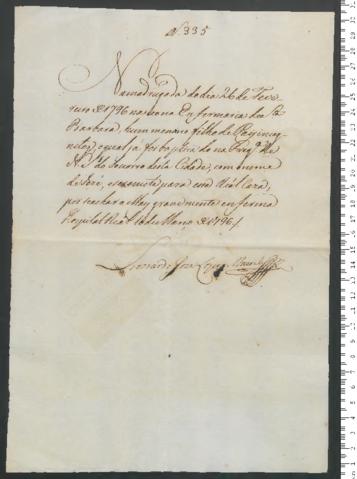 N. 335
Na madrugada do dia 26 de Feve-
reiro de 1796 nasceo na Enfermaria de Sta.
Barbara, hum menino filho de
o qual ja foi baptizado na Freg.ª de
N. S.ª do Socorro desta Cidade, com o nome
de José, e remete para essa Real Caza,
por se achar a May gravemente enferma
Hospital Real de Março de 1796
Leonardo José